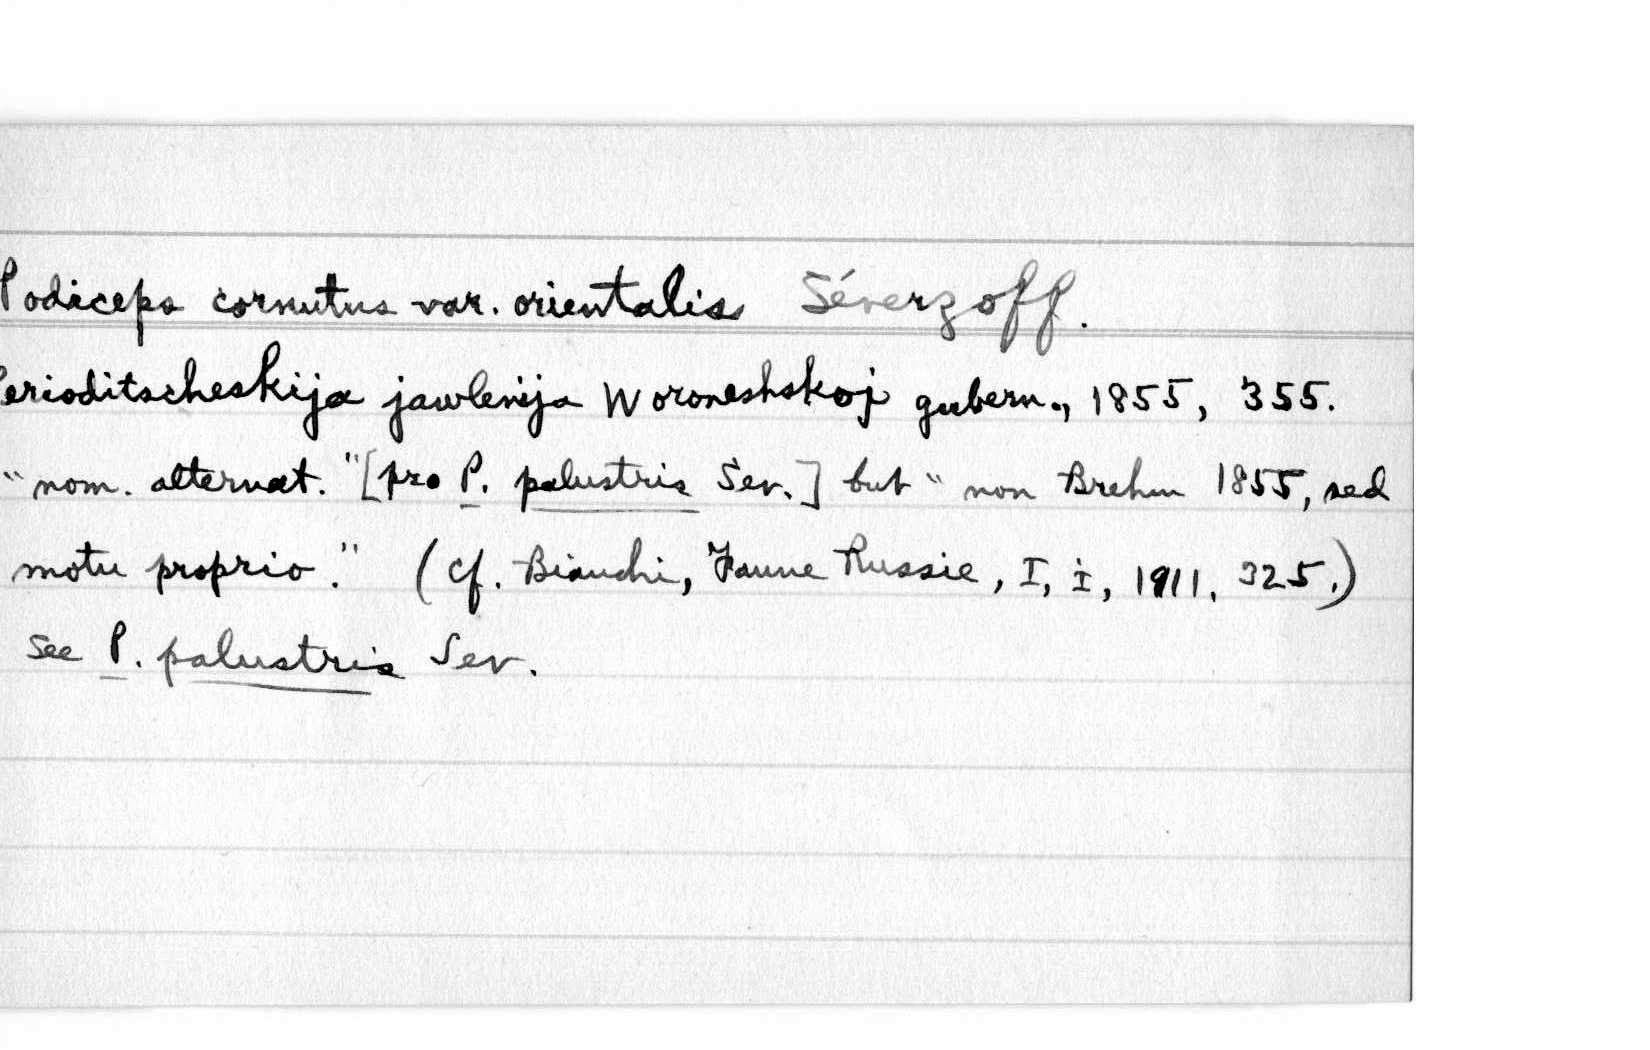 Podiceps cornutus var. orientalis Séverzoff.
Perioditscheskija jawlenija Woroneshskoj gubern., 1855, 355.
"nom. alternat." [pro P. palustris Sev.] but "non Brehm 1855, sed
motu proprio." (cf. Bianchi, Faune Russie, I, i, 1911, 325.)
See P. palustris Sev.